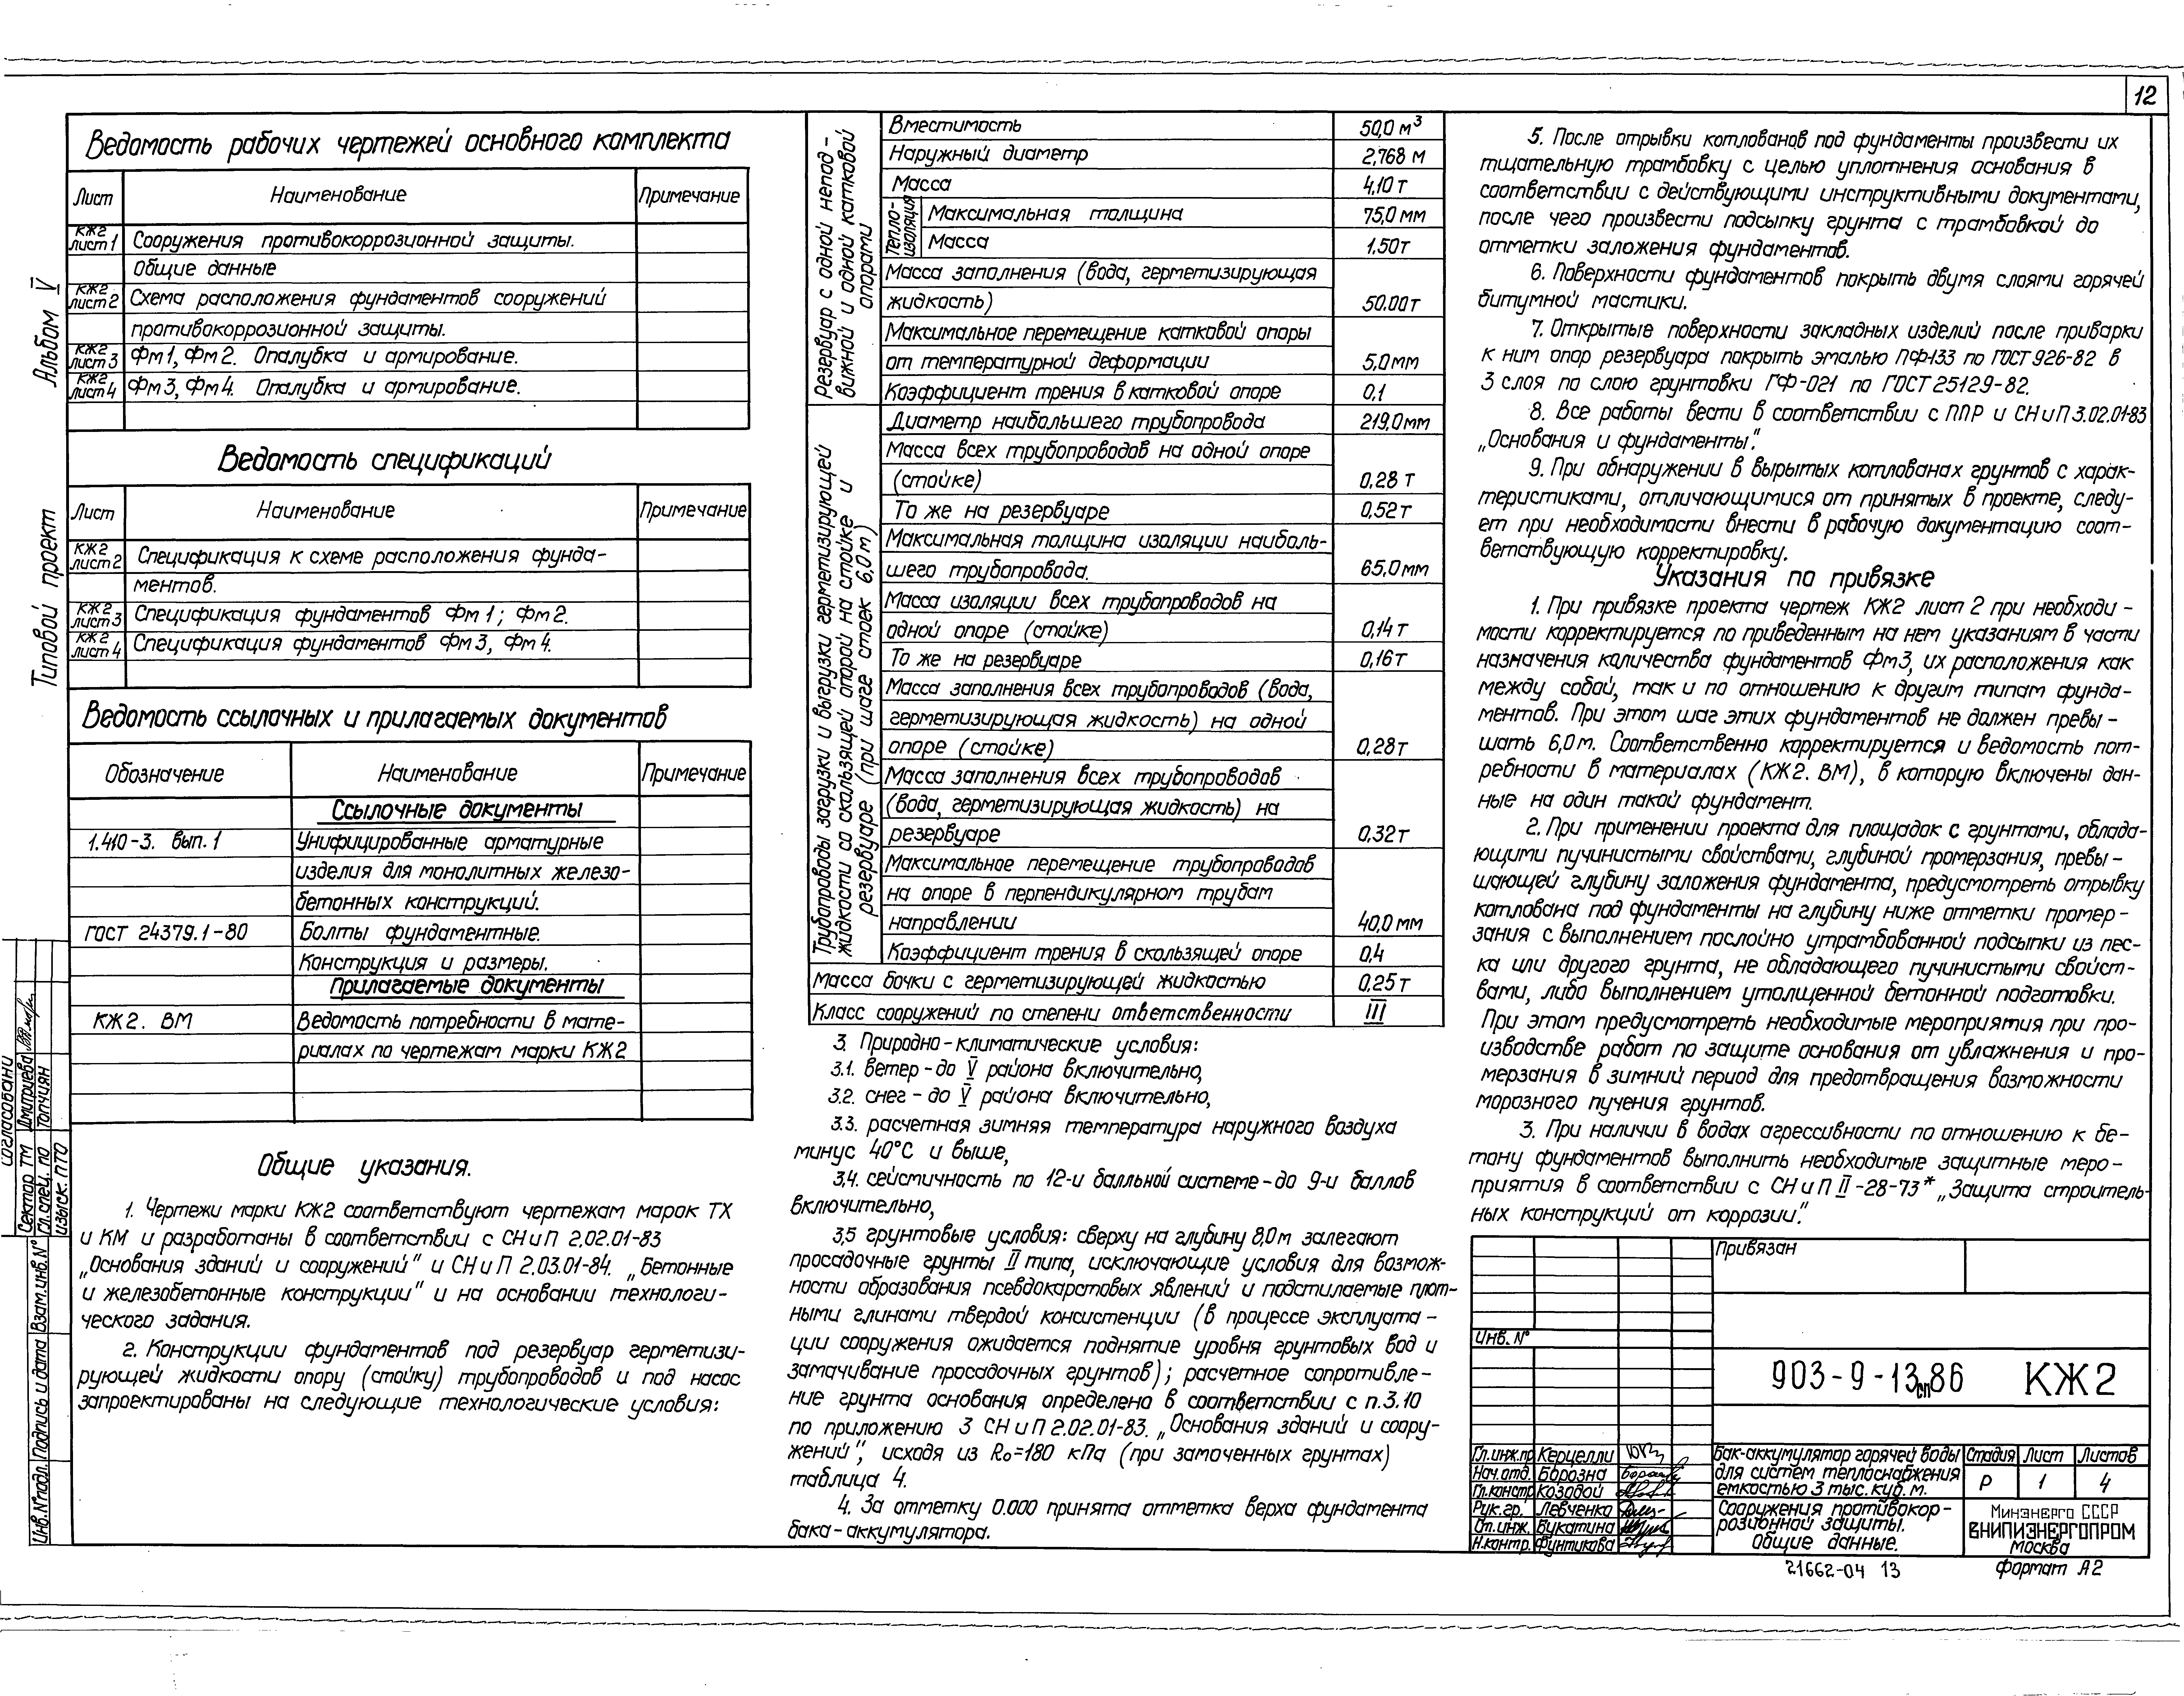 12
Альбом V
Типовой проект
Ведомость рабочих чертежей основного комплекта
Лист Наименование Примечание
КЖ2 лист 1 Сооружения противокоррозионной защиты.
Общие данные
КЖ2 лист 2 Схема расположения фундаментов сооружений
противокоррозионной защиты.
КЖ2 лист 3 Фм1, Фм2. Опалубка и армирование.
КЖ2 лист 4 Фм3, Фм4. Опалубка и армирование.
Ведомость спецификаций
Лист Наименование Примечание
КЖ2 лист 2 Спецификация к схеме расположения фунда-
ментов.
КЖ2 лист 3 Спецификация фундаментов Фм1; Фм2.
КЖ2 лист 4 Спецификация фундаментов Фм3, Фм4.
Ведомость ссылочных и прилагаемых документов
Обозначение Наименование Примечание
Ссылочные документы
1.410-3. вып. 1 Унифицированные арматурные
изделия для монолитных железо-
бетонных конструкций.
ГОСТ 24379.1-80 Болты фундаментные.
Конструкция и размеры.
Прилагаемые документы
КЖ2. ВМ Ведомость потребности в мате-
риалах по чертежам марки КЖ2
Общие указания.
1. Чертежи марки КЖ2 соответствуют чертежам марок ТХ
и КМ и разработаны в соответствии с СНиП 2.02.01-83
„Основания зданий и сооружений" и СНиП 2.03.01-84. „Бетонные
и железобетонные конструкции" и на основании технологи-
ческого задания.
2. Конструкции фундаментов под резервуар герметизи-
рующей жидкости опору (стойку) трубопроводов и под насос
запроектированы на следующие технологические условия:
Резервуар с одной непод-
вижной и одной катковой
опорами
Вместимость 50,0 м³
Наружный диаметр 2,768 м
Масса 4,10 т
Тепло-
изоляция
Максимальная толщина 75,0 мм
Масса 1,50 т
Масса заполнения (вода, герметизирующая
жидкость) 50.00 т
Максимальное перемещение катковой опоры
от температурной деформации 5,0 мм
Коэффициент трения в катковой опоре 0,1
Трубопроводы загрузки и выгрузки герметизирующей
жидкости со скользящей опорой на стойке и
резервуаре (при шаге стоек 6,0 м)
Диаметр наибольшего трубопровода 219,0 мм
Масса всех трубопроводов на одной опоре
(стойке) 0,28 т
То же на резервуаре 0,52 т
Максимальная толщина изоляции наиболь-
шего трубопровода. 65,0 мм
Масса изоляции всех трубопроводов на
одной опоре (стойке) 0,14 т
То же на резервуаре 0,16 т
Масса заполнения всех трубопроводов (вода,
герметизирующая жидкость) на одной
опоре (стойке) 0,28 т
Масса заполнения всех трубопроводов
(вода, герметизирующая жидкость) на
резервуаре 0,32 т
Максимальное перемещение трубопроводов
на опоре в перпендикулярном трубам
направлении 40,0 мм
Коэффициент трения в скользящей опоре 0,4
Масса бочки с герметизирующей жидкостью 0,25 т
Класс сооружений по степени ответственности III
3. Природно-климатические условия:
3.1. ветер - до V района включительно,
3.2. снег - до V района включительно,
3.3. расчетная зимняя температура наружного воздуха
минус 40°С и выше,
3.4. сейсмичность по 12-и балльной системе - до 9-и баллов
включительно,
3.5 грунтовые условия: сверху на глубину 8,0 м залегают
просадочные грунты II типа, исключающие условия для возмож-
ности образования псевдокарстовых явлений и подстилаемые плот-
ными глинами твердой консистенции (в процессе эксплуата-
ции сооружения ожидается поднятие уровня грунтовых вод и
замачивание просадочных грунтов); расчетное сопротивле-
ние грунта основания определено в соответствии с п.3.10
по приложению 3 СНиП 2.02.01-83. „Основания зданий и соору-
жений", исходя из R₀=180 кПа (при замоченных грунтах)
таблица 4.
4. За отметку 0.000 принята отметка верха фундамента
бака-аккумулятора.
5. После отрывки котлованов под фундаменты произвести их
тщательную трамбовку с целью уплотнения основания в
соответствии с действующими инструктивными документами,
после чего произвести подсыпку грунта с трамбовкой до
отметки заложения фундаментов.
6. Поверхности фундаментов покрыть двумя слоями горячей
битумной мастики.
7. Открытые поверхности закладных изделий после приварки
к ним опор резервуара покрыть эмалью ПФ-133 по ГОСТ 926-82 в
3 слоя по слою грунтовки ГФ-021 по ГОСТ 25129-82.
8. Все работы вести в соответствии с ППР и СНиП 3.02.01-83
„Основания и фундаменты".
9. При обнаружении в вырытых котлованах грунтов с харак-
теристиками, отличающимися от принятых в проекте, следу-
ет при необходимости внести в рабочую документацию соот-
ветствующую корректировку.
Указания по привязке
1. При привязке проекта чертеж КЖ2 лист 2 при необходи-
мости корректируется по приведенным на нем указаниям в части
назначения количества фундаментов Фм3, их расположения как
между собой, так и по отношению к другим типам фунда-
ментов. При этом шаг этих фундаментов не должен превы-
шать 6,0 м. Соответственно корректируется и ведомость пот-
ребности в материалах (КЖ2. ВМ), в которую включены дан-
ные на один такой фундамент.
2. При применении проекта для площадок с грунтами, облада-
ющими пучинистыми свойствами, глубиной промерзания, превы-
шающей глубину заложения фундамента, предусмотреть отрывку
котлована под фундаменты на глубину ниже отметки промер-
зания с выполнением послойно утрамбованной подсыпки из пес-
ка или другого грунта, не обладающего пучинистыми свойст-
вами, либо выполнением утолщенной бетонной подготовки.
При этом предусмотреть необходимые мероприятия при про-
изводстве работ по защите основания от увлажнения и про-
мерзания в зимний период для предотвращения возможности
морозного пучения грунтов.
3. При наличии в водах агрессивности по отношению к бе-
тону фундаментов выполнить необходимые защитные меро-
приятия в соответствии с СНиП II-28-73* „Защита строитель-
ных конструкций от коррозии".
Привязан
Инв. №
903-9-13сп86 КЖ2
Гл.инж.пр Керцелли
Нач.отд. Борозна
Гл.констр Козодой
Рук.гр. Левченко
Ст.инж. Букатина
Н.контр. Фунтикова
Бак-аккумулятор горячей воды
для систем теплоснабжения
емкостью 3 тыс. куб. м.
Стадия Лист Листов
Р 1 4
Сооружения противокор-
розионной защиты.
Общие данные.
Минэнерго СССР
ВНИПИЭНЕРГОПРОМ
Москва
21662-04 13
Формат А2
Согласовано
Сектор ТМ Дмитриева
Гл. спец. по Топчиян
изыск. ПТО
Взам.инв.№
Подпись и дата
Инв.№ подл.